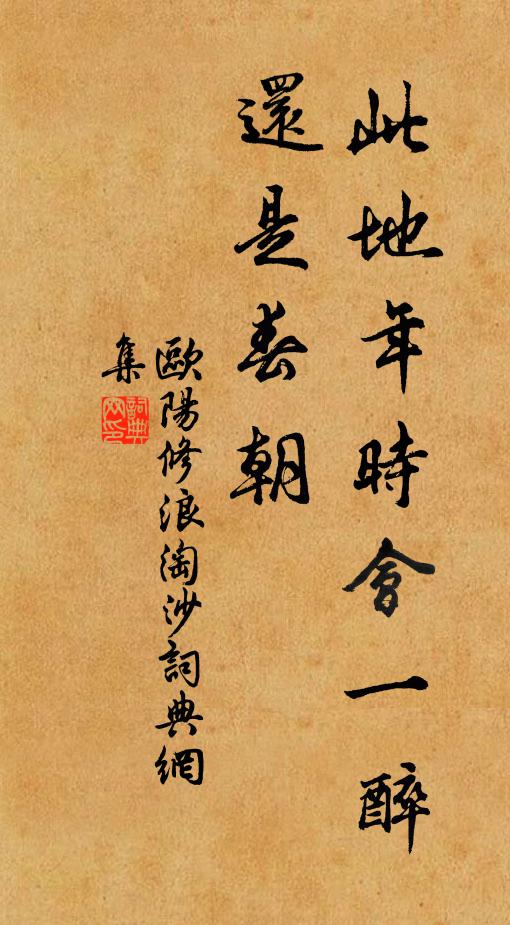 此地年時會一醉
還是春朝
歐陽修浪淘沙詞典網
集
詞典網印